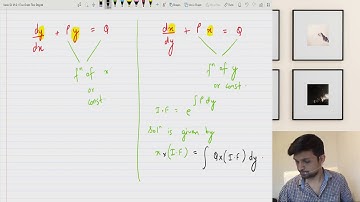 dy/dx + P y = Q
fⁿ of x
or
const.
dx/dy + P x = Q
fⁿ of y
or
const.
I.F. = e^∫P dy
Solⁿ is given by
x × (I.F.) = ∫ Q × (I.F.) dy